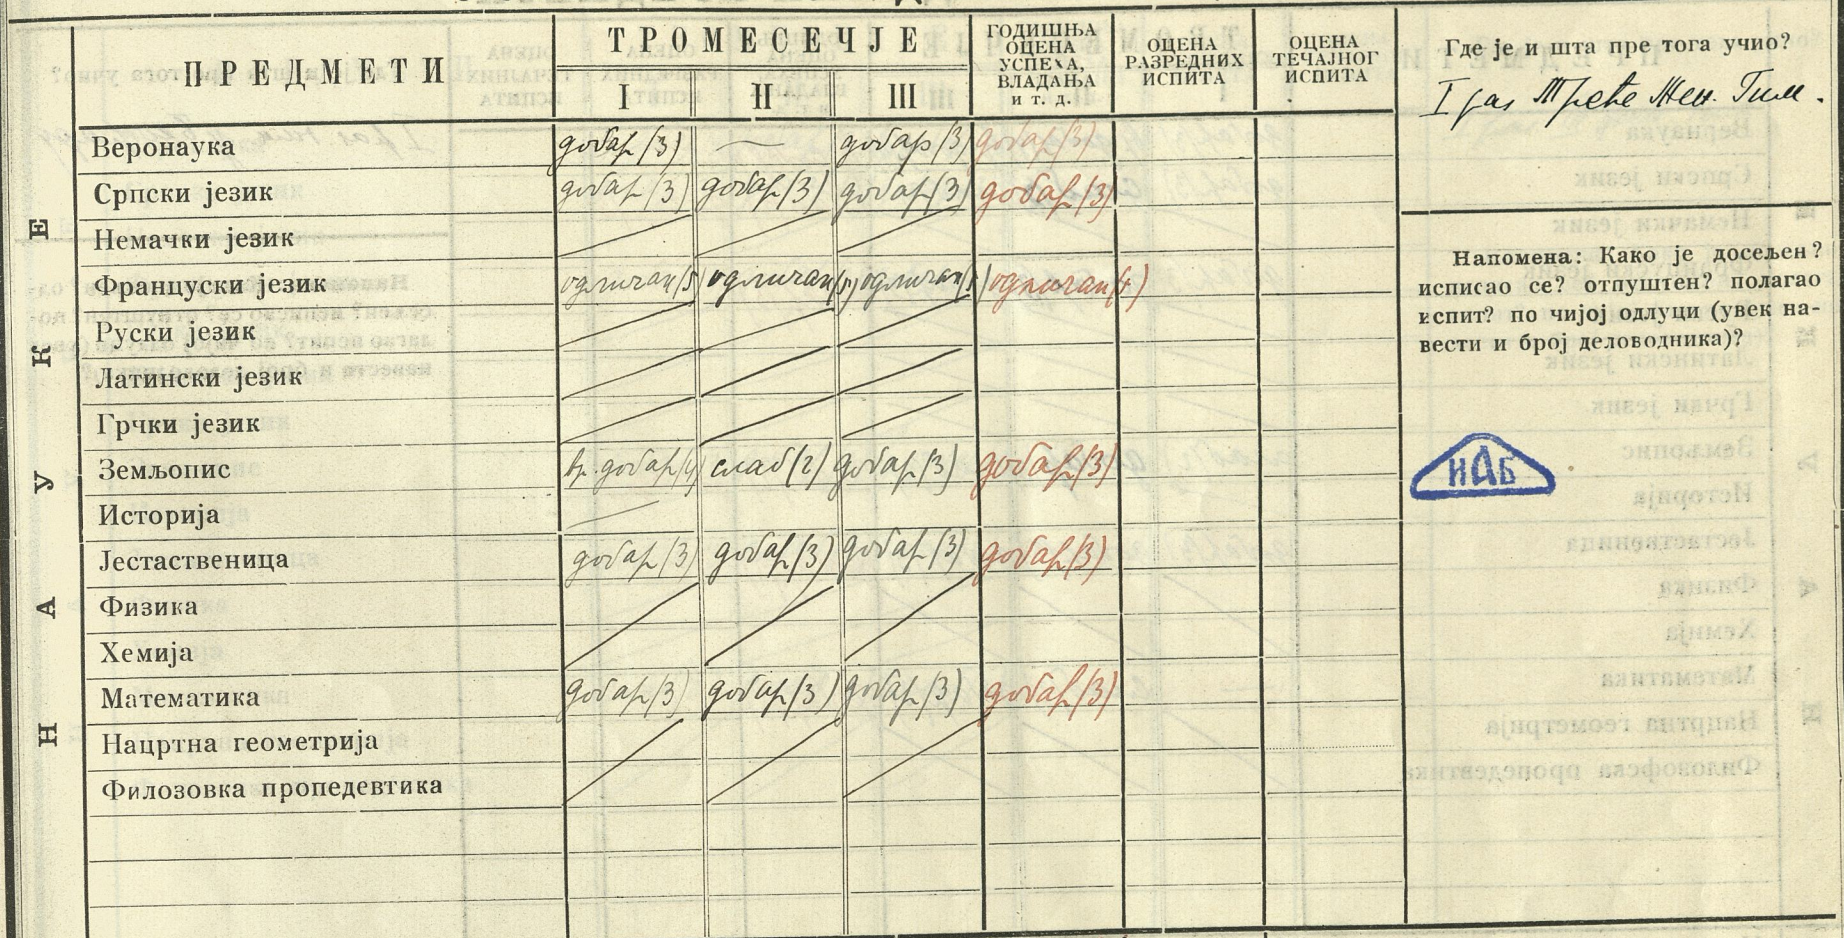 ПРЕДМЕТИ
ТРОМЕСЕЧЈЕ
I II III
ГОДИШЊА
ОЦЕНА
УСПЕХА,
ВЛАДАЊА
и т. д.
ОЦЕНА
РАЗРЕДНИХ
ИСПИТА
ОЦЕНА
ТЕЧАЈНОГ
ИСПИТА
Где је и шта пре тога учио?
I раз Треће Жен. Гим.
НАУКЕ
Веронаука добар (3) — добар (3) добар (3)
Српски језик добар (3) добар (3) добар (3) добар (3)
Немачки језик
Француски језик одличан (5) одличан одличан одличан
Руски језик
Латински језик
Грчки језик
Земљопис вр. добар (4) слаб (2) добар (3) добар (3)
Историја
Јестаственица добар (3) добар (3) добар (3) добар (3)
Физика
Хемија
Математика добар (3) добар (3) добар (3) добар (3)
Нацртна геометрија
Филозовка пропедевтика
Напомена: Како је досељен?
исписао се? отпуштен? полагао
испит? по чијој одлуци (увек на-
вести и број деловодника)?
иАБ